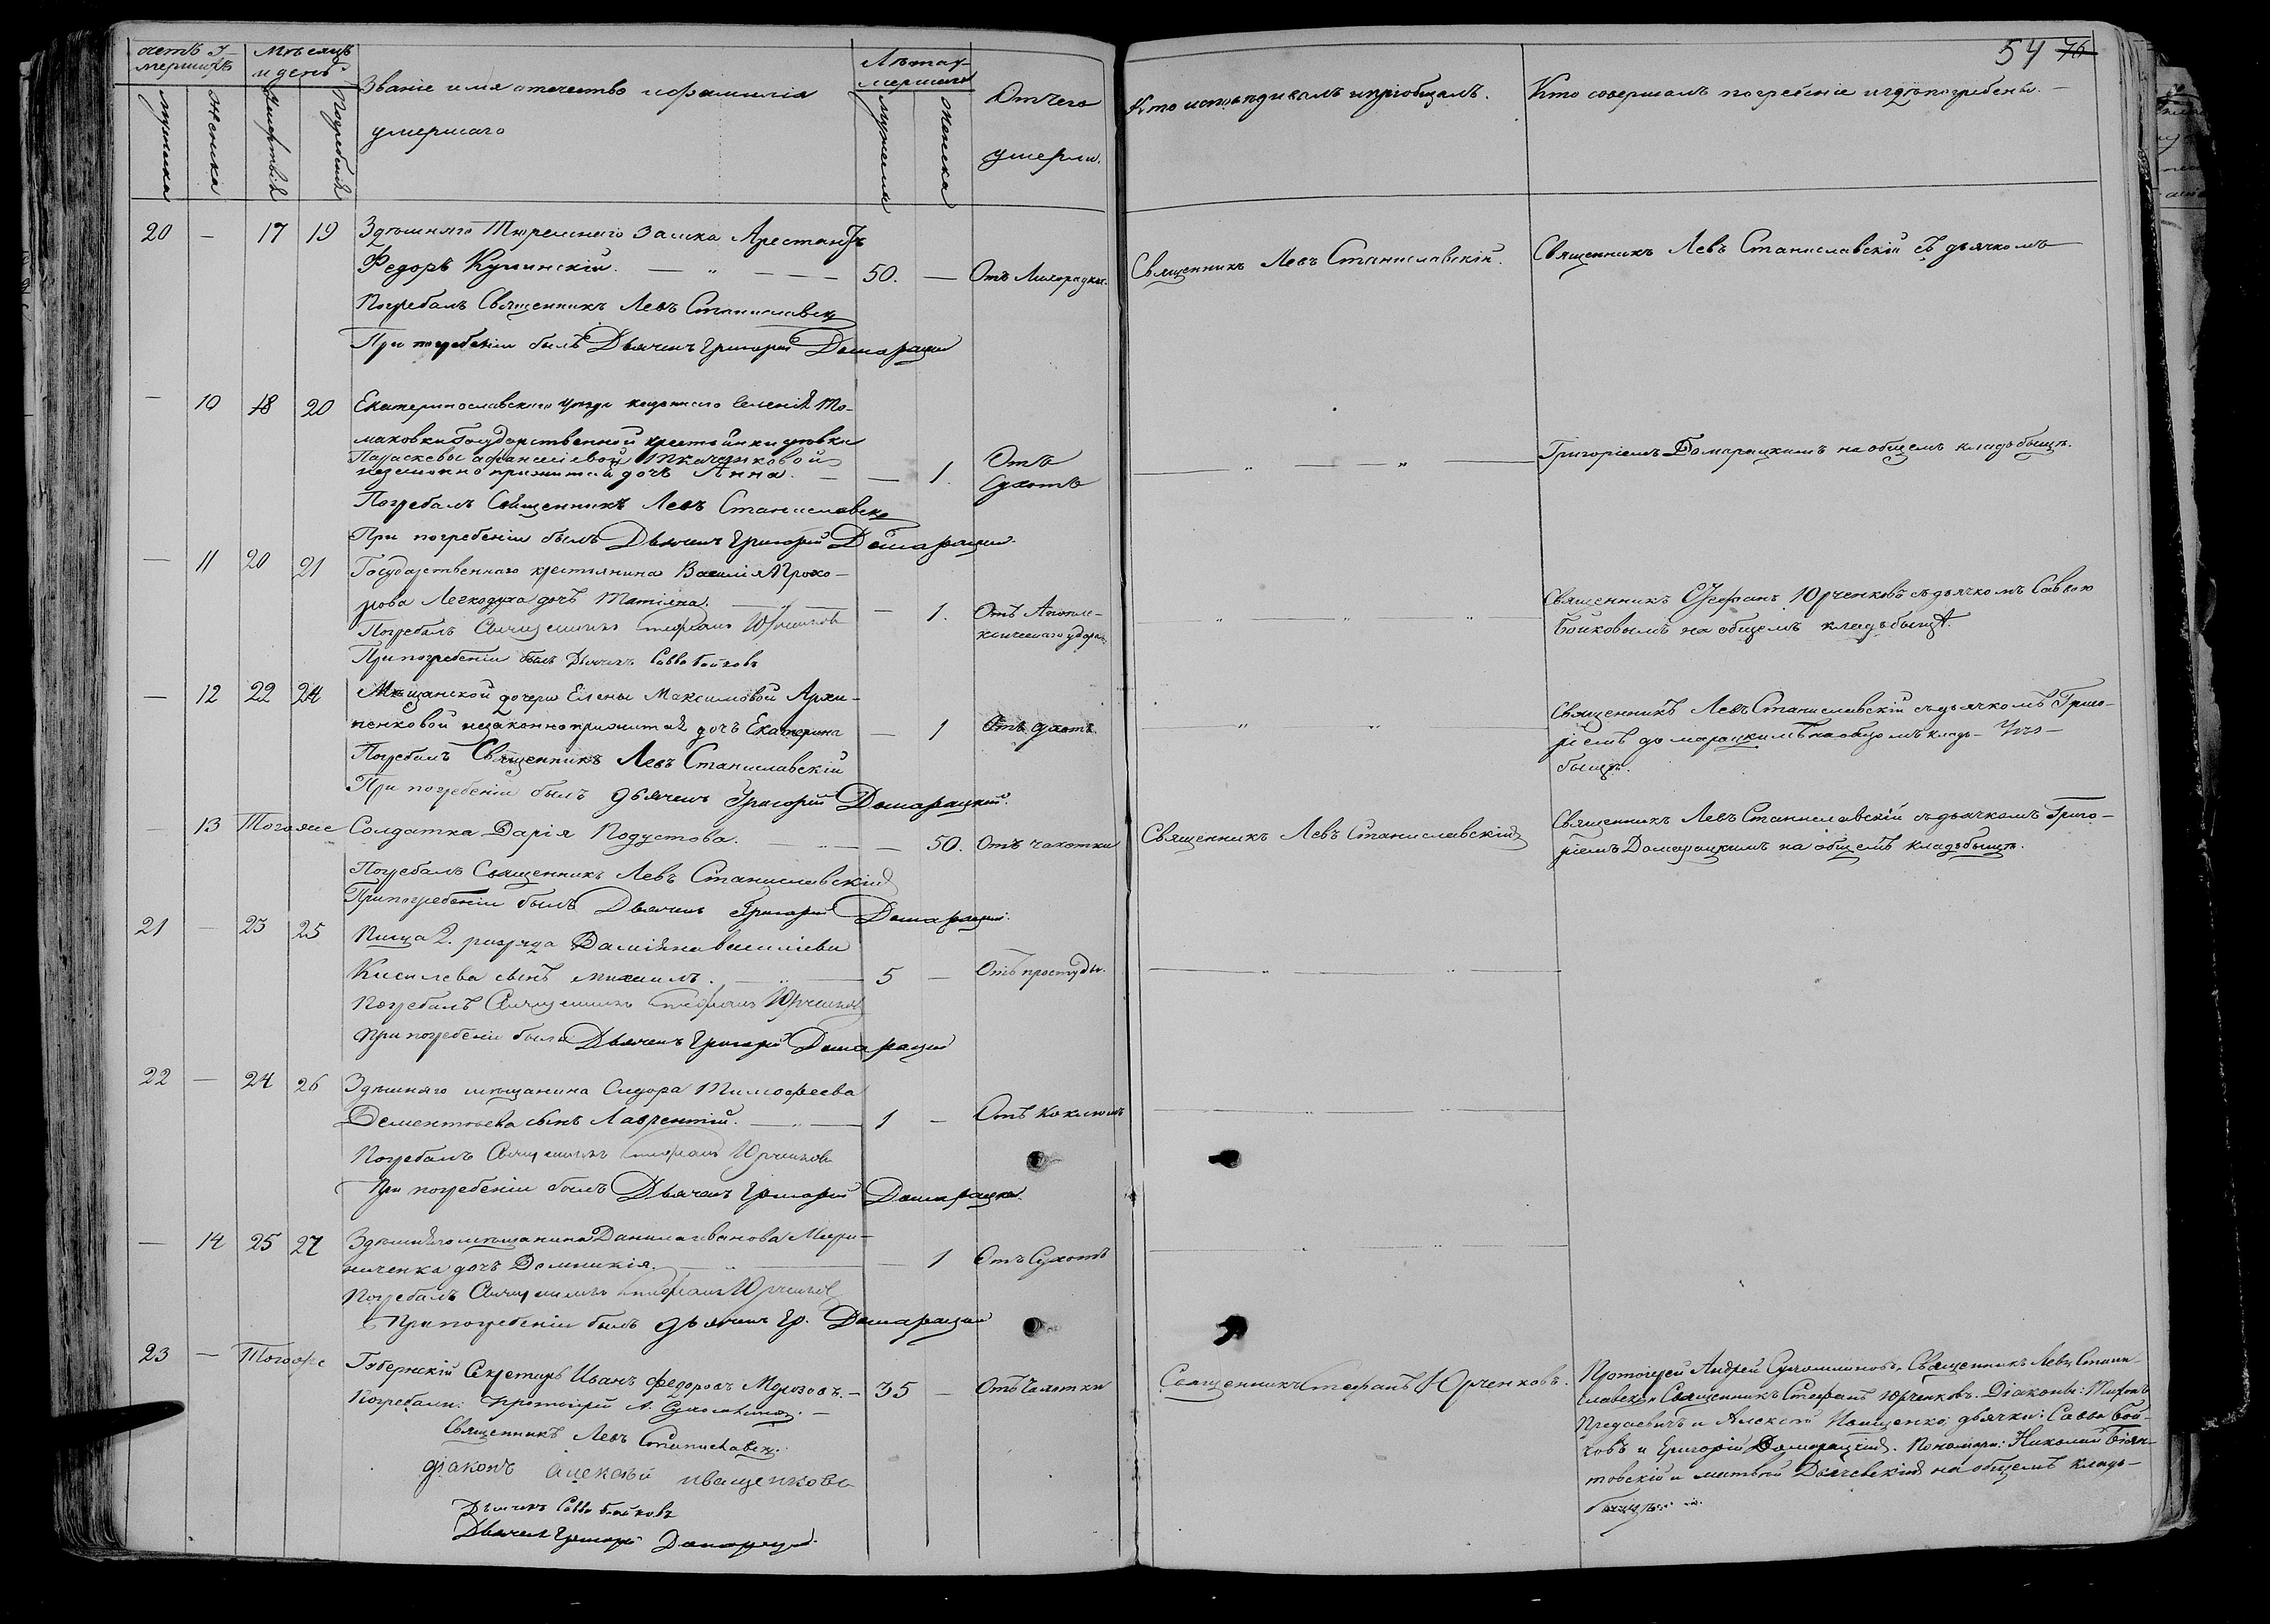 54 76
счетъ у-
мершихъ
Мѣсяцъ
и день
Званіе имя отечество и фамилія
умершаго
Лѣта у-
мершаго
Отъ чего
умерли.
Кто исповѣдывалъ и пріобщалъ.
Кто совершалъ погребеніе и гдѣ погребены.
мужеска
женска
смерти
погребенія
мужеска
женска
20 — 17 19 Здѣшняго Тюремнаго Замка Арестантъ
Федоръ — 50. — Отъ Лихорадки. Священникъ Левъ Станиславскій. Священникъ Левъ Станиславскій съ дьячкомъ
Погребалъ Священникъ Левъ Станиславск
При погребеніи былъ Дьячекъ Григорій Домарацкій
— 10 18 20 Екатеринославскаго уѣзда казеннаго селенія То-
маковки Государственной крестьянки
незаконно прижитая дочь Анна. — 1. Отъ
Сухотъ
Григоріемъ Домарацкимъ на общемъ кладбищѣ.
Погребалъ Священникъ Левъ Станиславск
При погребеніи былъ Дьячекъ Григорій Домарацкій
— 11 20 21 Государственнаго крестьянина Василія Прохо-
рова Легкодуха дочь Татіяна. — 1. Отъ Апопле-
ксическаго удара
Священникъ Стефанъ Юрченковъ съ дьячкомъ Саввою
Бойковымъ на общемъ кладбищѣ.
Погребалъ Священникъ Стефанъ Юрченковъ
При погребеніи былъ Дьячекъ Савва Бойковъ
— 12 22 24 Мѣщанской дочери Елены Максимовой Архи-
пенковой незаконноприжитая дочь Екатерина — 1 Отъ сухотъ.
Священникъ Левъ Станиславскій съ дьячкомъ Григо-
ріемъ Домарацкимъ на общемъ кладъ-
бищѣ.
Погребалъ Священникъ Левъ Станиславскій
При погребеніи былъ дьячекъ Григорій Домарацкій.
— 13 Тогоже Солдатка Дарія Подустова. — 50. Отъ чахотки Священникъ Левъ Станиславскій
Священникъ Левъ Станиславскій съ дьячкомъ Григо-
ріемъ Домарацкимъ на общемъ кладбищѣ.
Погребалъ Священникъ Левъ Станиславскій
При погребеніи былъ Дьячекъ Григорій Домарацкій.
21 — 23 25 Писца 2. разряда
Киселева сынъ Михаилъ. 5 — Отъ простуды.
Погребалъ Священникъ Стефанъ Юрченковъ
При погребеніи былъ Дьячекъ Григорій Домарацкій
22 — 24 26 Здѣшняго мѣщанина Сидора Тимофеева
Дементьева сынъ Лаврентій. — 1 — Отъ
Погребалъ Священникъ Стефанъ Юрченковъ
При погребеніи былъ Дьячекъ Григорій Домарацкій.
— 14 25 27 Здѣшняго мѣщанина Данила Иванова Мири-
ниченка дочь Домникія. — 1 Отъ Сухотъ
Погребалъ Священникъ Стефанъ Юрченковъ
При погребеніи былъ дьячекъ Гр. Домарацкій
23 — Тогоже Губернскій Секретарь Иванъ Федоровъ Морозовъ. — 35 — Отъ Чахотки Священникъ Стефанъ Юрченковъ.
Протоіерей Андрей Священникъ Левъ Стани-
славскій Священникъ Стефанъ Юрченковъ. Діаконы:
и Алексѣй Иващенко; дьячки: Савва Бой-
ковъ и Григорій Домарацкій. Пономари: Николай
и Матвѣй на общемъ кладъ-
бищѣ.
Погребали: Протоіерей А.
Священникъ Левъ Станиславск.
діаконъ алексѣй иващенковъ
Дьячекъ Савва Бойковъ
Дьячекъ Григорій Домарацкій.